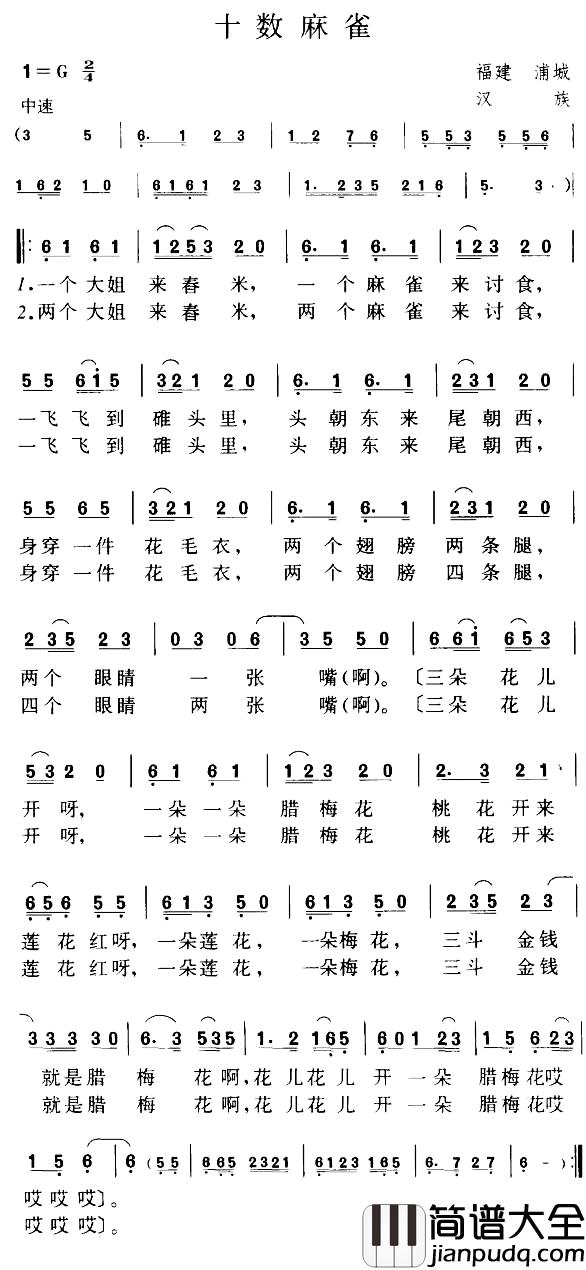 十数麻雀
1=G 2/4
福建 浦城
中速
汉 族
(3 5 | 6. 1 2 3 | 1 2 7 6 | 5 5 3 5 5 6 |
1 6 2 1 0 | 6 1 6 1 2 3 | 1. 2 3 5 2 1 6 | 5. 3 · )|
‖: 6 1 6 1 | 1 2 5 3 2 0 | 6. 1 6. 1 | 1 2 3 2 0 |
1.一个 大姐 来舂 米, 一个 麻雀 来讨食,
2.两个 大姐 来舂 米, 两个 麻雀 来讨食,
5 5 6 1 5 | 3 2 1 2 0 | 6. 1 6. 1 | 2 3 1 2 0 |
一飞 飞到 碓头里, 头朝 东来 尾朝西,
一飞 飞到 碓头里, 头朝 东来 尾朝西,
5 5 6 5 | 3 2 1 2 0 | 6. 1 6. 1 | 2 3 1 2 0 |
身穿 一件 花毛衣, 两个 翅膀 两条腿,
身穿 一件 花毛衣, 两个 翅膀 四条腿,
2 3 5 2 3 | 0 3 0 6 | 3 5 5 0 | 6 6 1 6 5 3 |
两个 眼睛 一张 嘴(啊)。〔三朵 花儿
四个 眼睛 两张 嘴(啊)。〔三朵 花儿
5 3 2 0 | 6 1 6 1 | 1 2 3 2 0 | 2. 3 2 1 |
开呀, 一朵 一朵 腊梅花 桃花开来
开呀, 一朵 一朵 腊梅花 桃花开来
6 5 6 5 5 | 6 1 3 5 0 | 6 1 3 5 0 | 2 3 5 2 3 |
莲花红呀, 一朵莲花, 一朵梅花, 三斗 金钱
莲花红呀, 一朵莲花, 一朵梅花, 三斗 金钱
3 3 3 3 0 | 6. 3 5 3 5 | 1. 2 1 6 5 | 6 0 1 2 3 | 1 5 6 2 3 |
就是腊 梅 花啊,花儿花儿 开一朵 腊梅花哎
就是腊 梅 花啊,花儿花儿 开一朵 腊梅花哎
1 5 6 | 6 (5 5 | 6 6 5 2 3 2 1 | 6 1 2 3 1 6 5 | 6. 7 2 7 | 6 - ) :‖
哎哎哎〕。
哎哎哎〕。
简谱大全
jianpudq.com